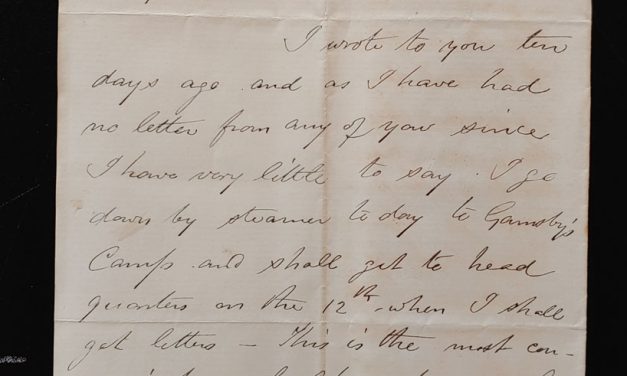 I wrote to you ten
days ago and as I have had
no letter from any of you since
I have very little to say. I go
down by steamer to day to Gamsby's
Camp and shall get to head
quarters on the 12th when I shall
get letters — This is the most con-